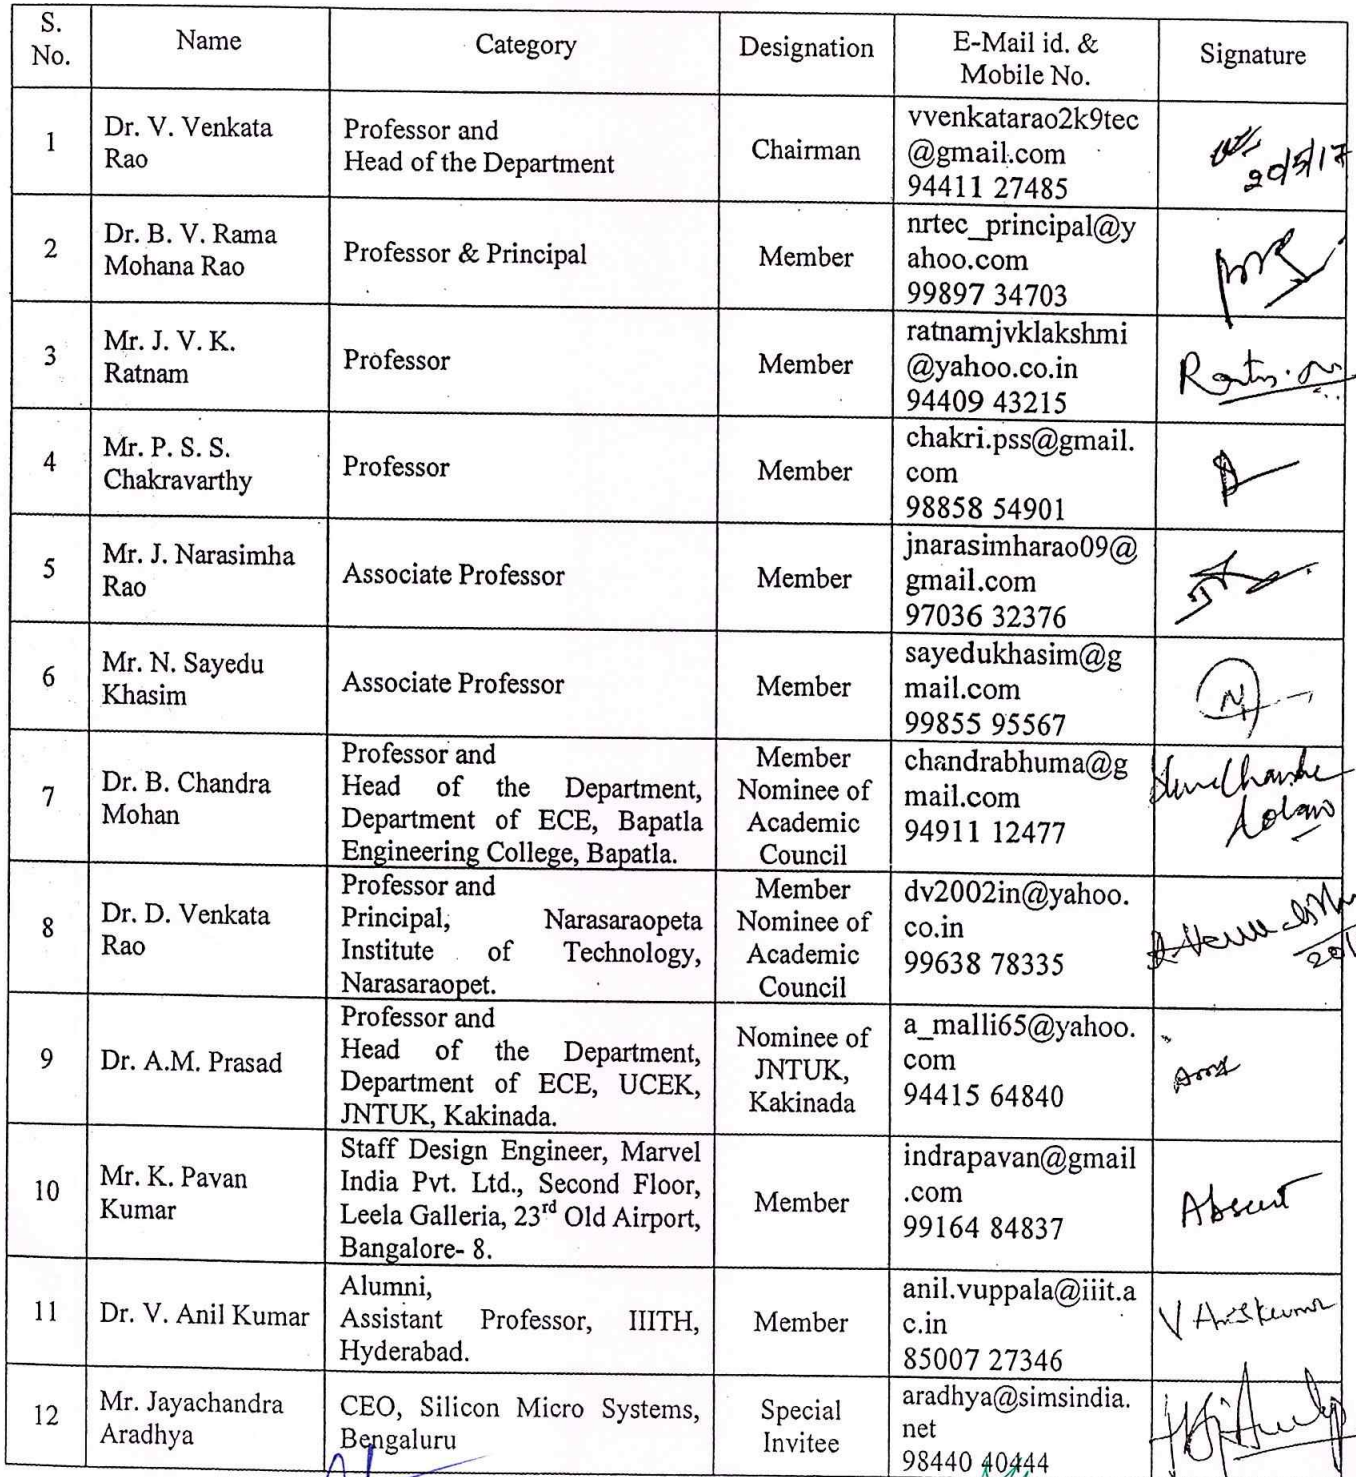 S. No.
Name
Category
Designation
E-Mail id. &
Mobile No.
Signature
1
Dr. V. Venkata
Rao
Professor and
Head of the Department
Chairman
vvenkatarao2k9tec
@gmail.com
94411 27485
20/5/17
2
Dr. B. V. Rama
Mohana Rao
Professor & Principal
Member
nrtec_principal@y
ahoo.com
99897 34703
3
Mr. J. V. K.
Ratnam
Professor
Member
ratnamjvklakshmi
@yahoo.co.in
94409 43215
4
Mr. P. S. S.
Chakravarthy
Professor
Member
chakri.pss@gmail.
com
98858 54901
5
Mr. J. Narasimha
Rao
Associate Professor
Member
jnarasimharao09@
gmail.com
97036 32376
6
Mr. N. Sayedu
Khasim
Associate Professor
Member
sayedukhasim@g
mail.com
99855 95567
7
Dr. B. Chandra
Mohan
Professor and
Head of the Department,
Department of ECE, Bapatla
Engineering College, Bapatla.
Member
Nominee of
Academic
Council
chandrabhuma@g
mail.com
94911 12477
8
Dr. D. Venkata
Rao
Professor and
Principal, Narasaraopeta
Institute of Technology,
Narasaraopet.
Member
Nominee of
Academic
Council
dv2002in@yahoo.
co.in
99638 78335
9
Dr. A.M. Prasad
Professor and
Head of the Department,
Department of ECE, UCEK,
JNTUK, Kakinada.
Nominee of
JNTUK,
Kakinada
a_malli65@yahoo.
com
94415 64840
10
Mr. K. Pavan
Kumar
Staff Design Engineer, Marvel
India Pvt. Ltd., Second Floor,
Leela Galleria, 23rd Old Airport,
Bangalore- 8.
Member
indrapavan@gmail
.com
99164 84837
Absent
11
Dr. V. Anil Kumar
Alumni,
Assistant Professor, IIITH,
Hyderabad.
Member
anil.vuppala@iiit.a
c.in
85007 27346
V Anil kumar
12
Mr. Jayachandra
Aradhya
CEO, Silicon Micro Systems,
Bengaluru
Special
Invitee
aradhya@simsindia.
net
98440 40444